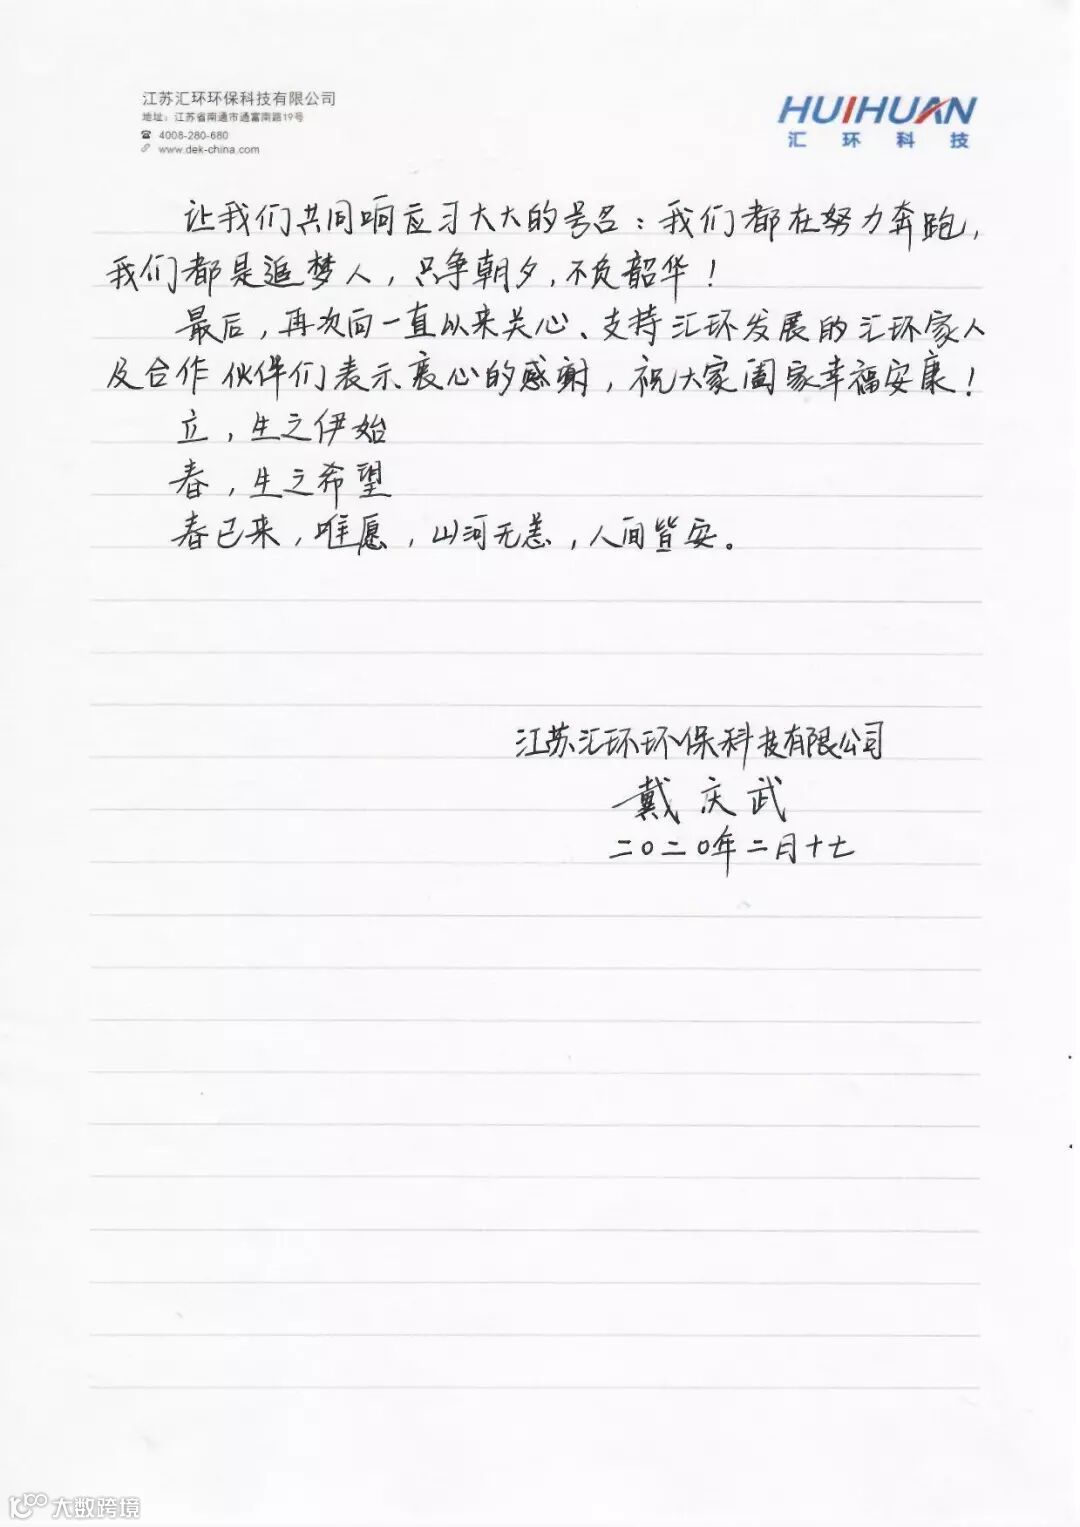 江苏汇环环保科技有限公司
地址：江苏省南通市通富南路19号
4008-280-680
www.dek-china.com
HUIHUAN
汇环科技
让我们共同响应习大大的号召：我们都在努力奔跑，
我们都是追梦人，只争朝夕，不负韶华！
最后，再次向一直以来关心、支持汇环发展的汇环家人
及合作伙伴们表示衷心的感谢，祝大家阖家幸福安康！
立，生之伊始
春，生之希望
春已来，唯愿，山河无恙，人间皆安。
江苏汇环环保科技有限公司
戴庆武
二〇二〇年二月十七
大数跨境